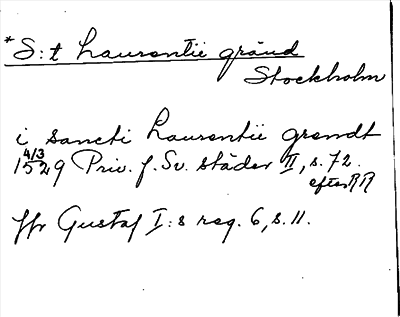 * S:t Laurentii gränd
Stockholm
i sancti Laurentii grendt
4/3
1529 Priv. f. Sv. städer II, s. 72.
efter RR
Jfr Gustaf I:s reg. 6, s. 11.